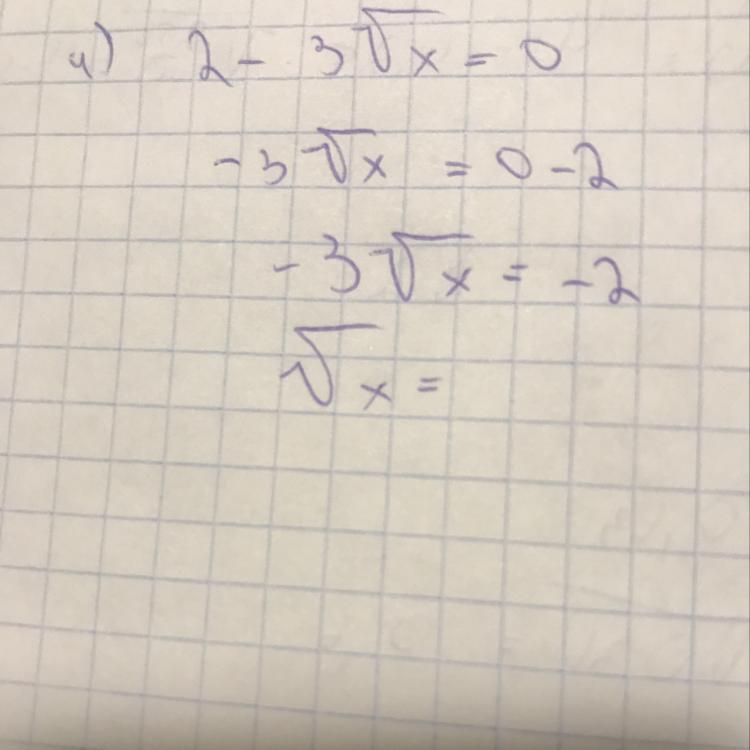 4) 2 - 3√x = 0
-3√x = 0 - 2
-3√x = -2
√x =